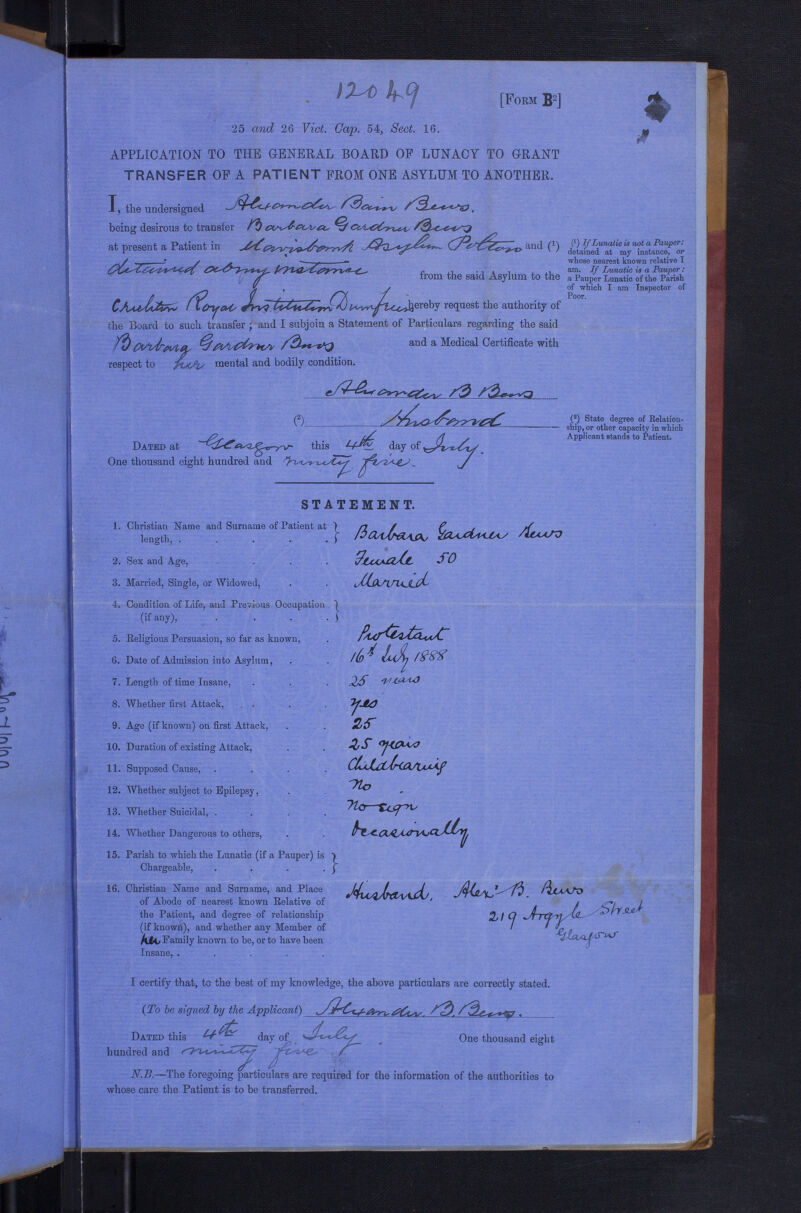 12049
[FORM B²]
25 and 26 Vict. Cap. 54, Sect. 16.
APPLICATION TO THE GENERAL BOARD OF LUNACY TO GRANT
TRANSFER OF A PATIENT FROM ONE ASYLUM TO ANOTHER.
I, the undersigned Alexander Bain Bews.
being desirous to transfer Barbara Gardner Bews
at present a Patient in Mavisbank Asylum Polton and (¹)
detained at my instance from the said Asylum to the
Crichton Royal Institution Dumfries hereby request the authority of
the Board to such transfer; and I subjoin a Statement of Particulars regarding the said
Barbara Gardner Bews and a Medical Certificate with
respect to her mental and bodily condition.
(¹) If Lunatic is not a Pauper:
detained at my instance, or
whose nearest known relative I
am. If Lunatic is a Pauper:
a Pauper Lunatic of the Parish
of which I am Inspector of
Poor.
Alexander B Bews
(²) Husband
(²) State degree of Relation-
ship, or other capacity in which
Applicant stands to Patient.
DATED at Glasgow this 4th day of July.
One thousand eight hundred and ninety five.
STATEMENT.
1. Christian Name and Surname of Patient at
length, . . . . . Barbara Gardner Bews
2. Sex and Age, . . . Female 50
3. Married, Single, or Widowed, . . Married
4. Condition of Life, and Previous Occupation
(if any), . . . .
5. Religious Persuasion, so far as known, . Protestant
6. Date of Admission into Asylum, . . 16th July 1888
7. Length of time Insane, . . . 25 years
8. Whether first Attack, . . . yes
9. Age (if known) on first Attack, . . 25
10. Duration of existing Attack, . . 25 years
11. Supposed Cause, . . . . Childbearing
12. Whether subject to Epilepsy, . . No
13. Whether Suicidal, . . . . No sign
14. Whether Dangerous to others, . . Occasionally
15. Parish to which the Lunatic (if a Pauper) is
Chargeable, . . . .
16. Christian Name and Surname, and Place
of Abode of nearest known Relative of
the Patient, and degree of relationship
(if known), and whether any Member of
her Family known to be, or to have been
Insane, . . . . . .
Husband, Alexr B. Bews
219 Argyle Street
Glasgow
I certify that, to the best of my knowledge, the above particulars are correctly stated.
(To be signed by the Applicant) Alexander. B. Bews.
DATED this 4th day of July. One thousand eight
hundred and ninety five
N.B.—The foregoing particulars are required for the information of the authorities to
whose care the Patient is to be transferred.